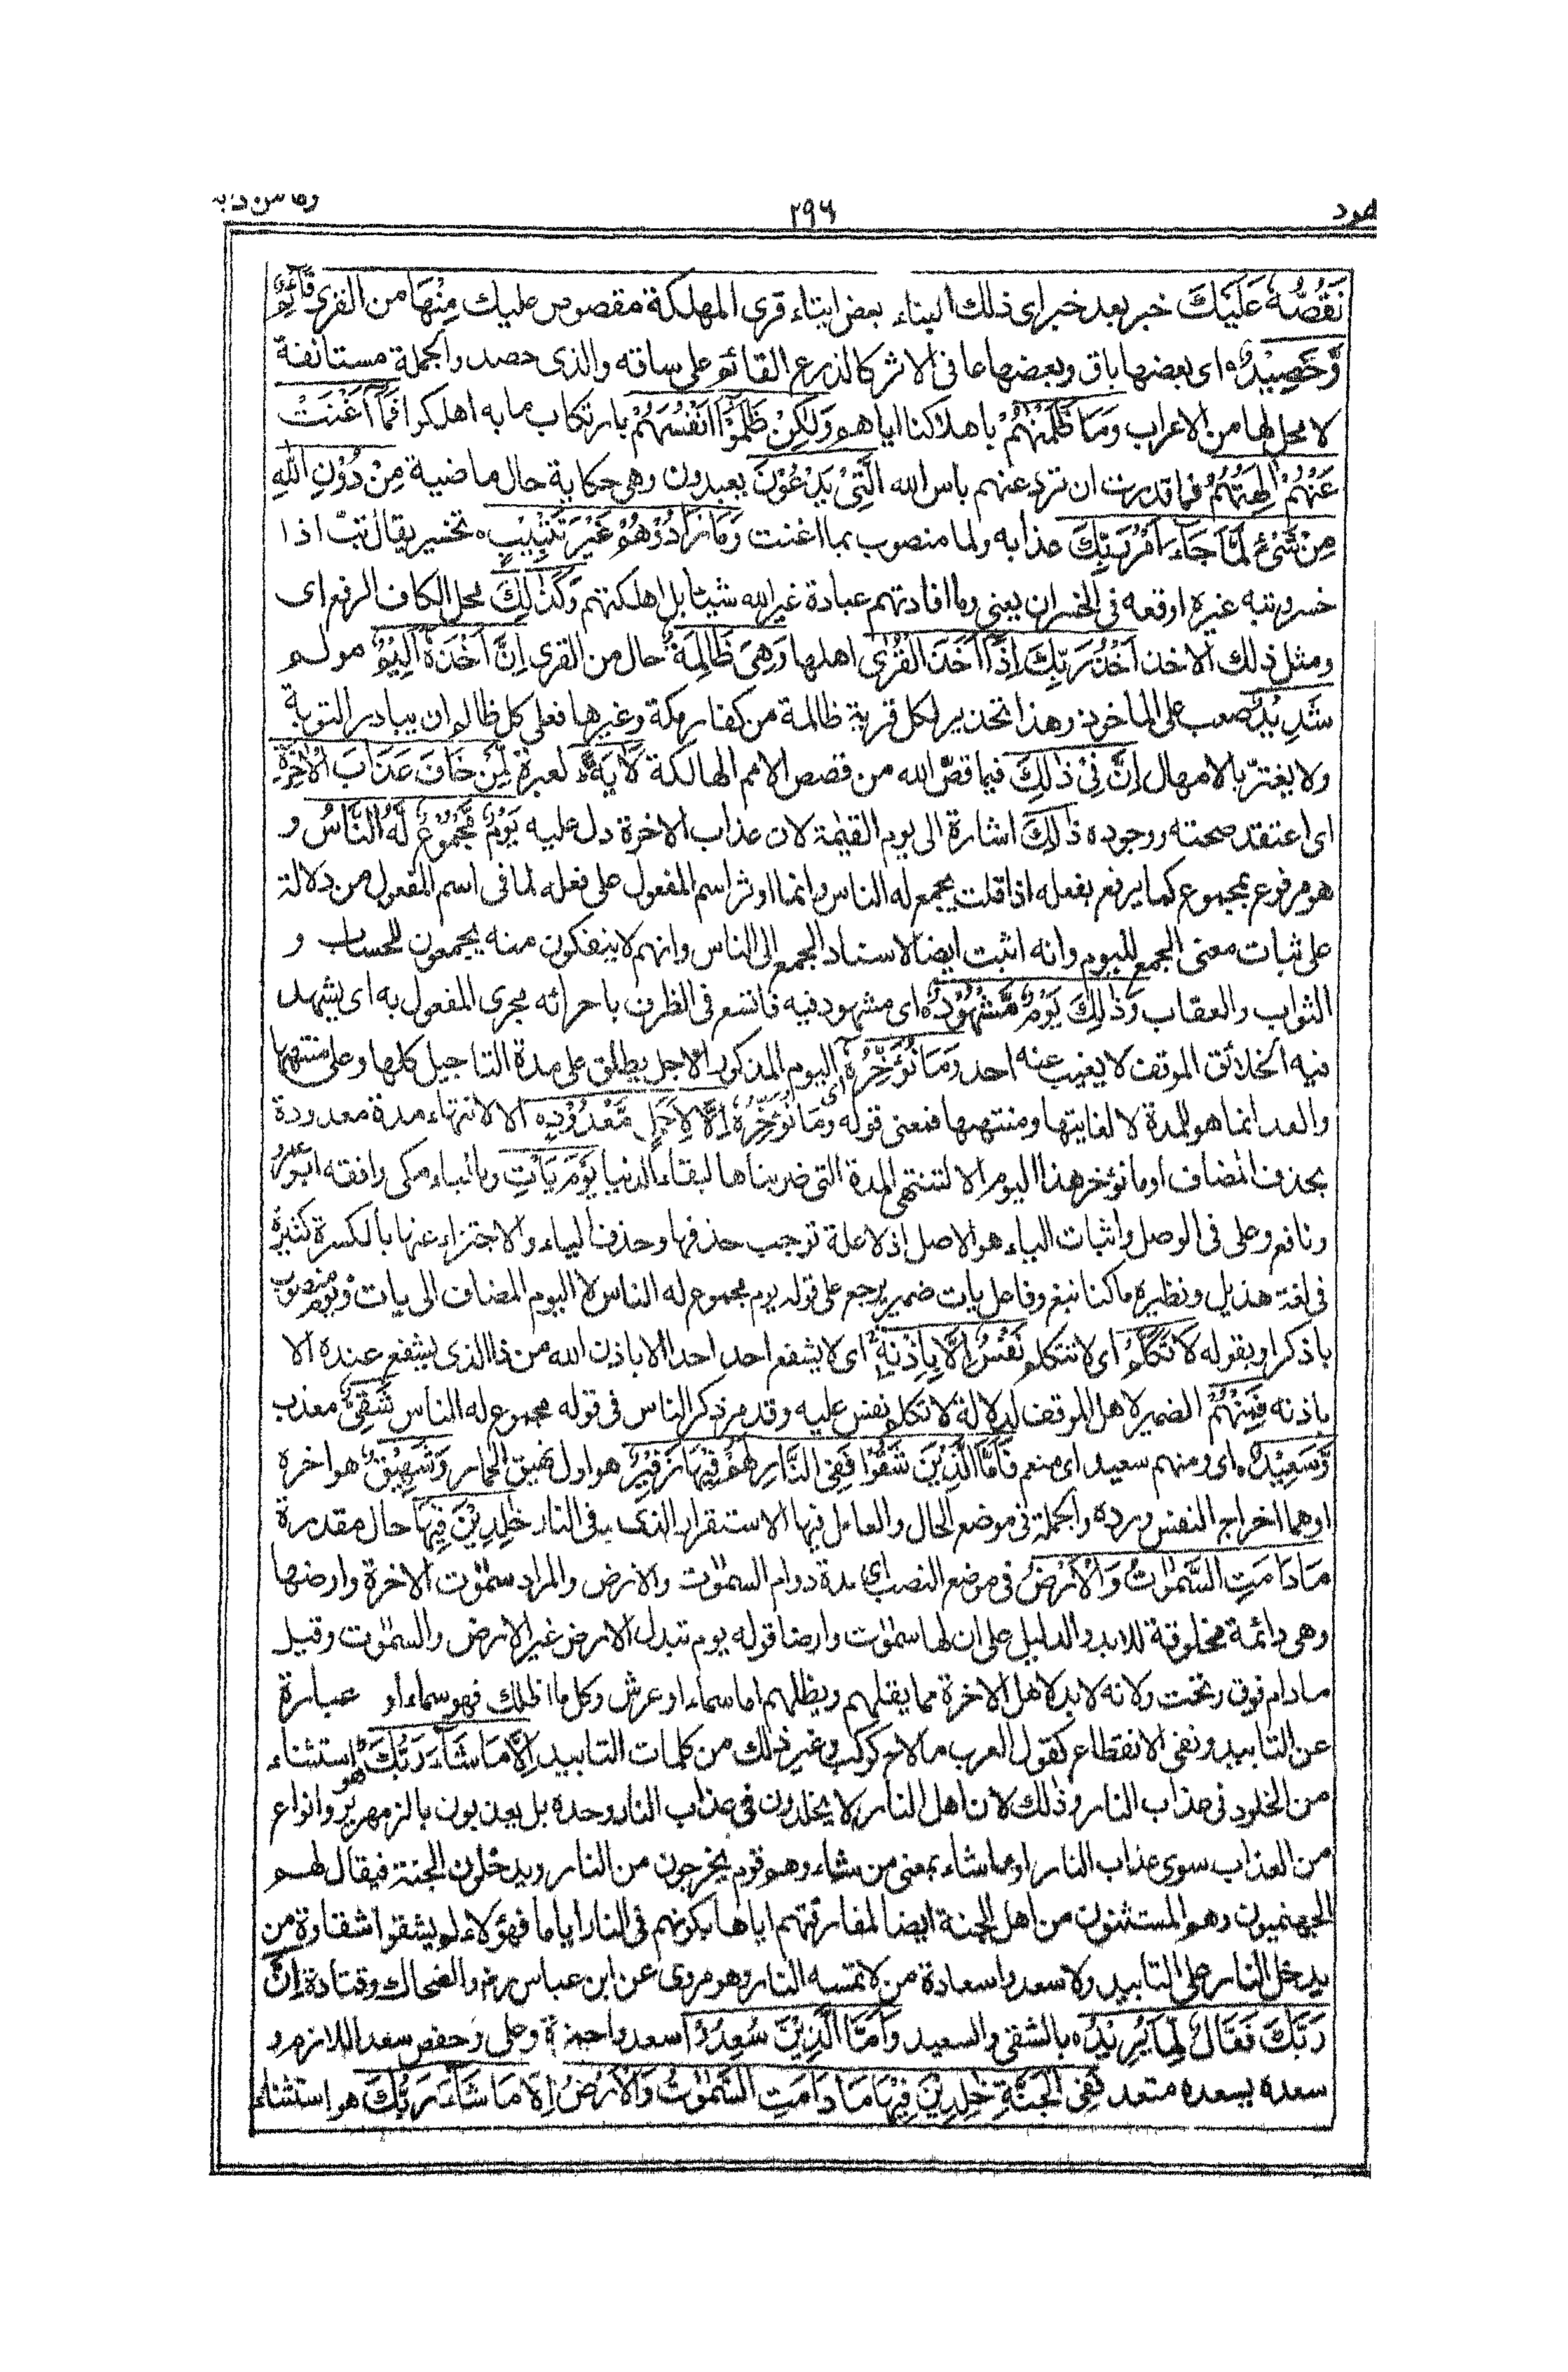 هود ٢٩٦ وما من دابة
نَقُصُّهٗ عَلَيْكَ خبر بعد خبر اى ذلك النباء بعض انباء قرى المهلكة مقصوص عليك مِنْهَا من القرى قَآئِمٌ
وَّحَصِيْدٌ ه اى بعضها باق وبعضها عافى الاثر كالذرع القائم على ساقه والذى حصد والجملة مستانفة
لا محل لها من الاعراب وَمَا ظَلَمْنٰهُمْ باهلاكنا اياهم وَلٰكِنْ ظَلَمُوْٓا اَنْفُسَهُمْ بارتكاب ما به اهلكوا فَمَآ اَغْنَتْ
عَنْهُمْ اٰلِهَتُهُمُ فما قدرت ان ترد عنهم باس الله الَّتِىْ يَدْعُوْنَ يعبدون وهى حكاية حال ماضية مِنْ دُوْنِ اللّٰهِ
مِنْ شَىْءٍ لَّمَّا جَآءَ اَمْرُ رَبِّكَ عذابه ولما منصوب بما اغنت وَمَا زَادُوْهُمْ غَيْرَ تَتْبِيْبٍ ه تخسير يقال تبّ اذا
خسر وتببه غيره اوقعه فى الخسران يعنى وما افادتهم عبادة غير الله شيئا بل اهلكتهم وَكَذٰلِكَ محل الكاف الرفع اى
ومثل ذلك الاخذ اَخْذُ رَبِّكَ اِذَآ اَخَذَ الْقُرٰى اهلها وَهِىَ ظَالِمَةٌ حال من القرى اِنَّ اَخْذَهٗٓ اَلِيْمٌ مولم
شَدِيْدٌ صعب على الماخوذ وهذا تحذير لكل قرية ظالمة من كفار مكة وغيرها فعلى كل ظالم ان يبادر التوبة
ولا يغترّ بالامهال اِنَّ فِىْ ذٰلِكَ فيما قصّ الله من قصص الامم الهالكة لَاٰيَةً لعبرة لِّمَنْ خَافَ عَذَابَ الْاٰخِرَةِ
اى اعتقد صحته ووجوده ذٰلِكَ اشارة الى يوم القيٰمة لان عذاب الاخرة دل عليه يَوْمٌ مَّجْمُوْعٌ لَّهُ النَّاسُ و
هو مرفوع بمجموع كما يرفع بفعله اذا قلت يجمع له الناس وانما اوثر اسم المفعول على فعله لما فى اسم المفعول من دلالة
على ثبات معنى الجمع لليوم وانه اثبت ايضا لاسناد الجمع الى الناس وانهم لا ينفكون منه يجمعون للحساب و
الثواب والعقاب وَذٰلِكَ يَوْمٌ مَّشْهُوْدٌ ه اى مشهود فيه فاتسع فى الظرف باجرائه مجرى المفعول به اى يشهد
فيه الخلائق الموقف لا يغيب عنه احد وَمَا نُؤَخِّرُهٗٓ اى اليوم المذكور الاجل يطلق على مدة التاجيل كلها وعلى منتهها
والعد انما هو للمدة لا لغايتها ومنتهها فمعنى قوله وَمَا نُؤَخِّرُهٗٓ اِلَّا لِاَجَلٍ مَّعْدُوْدٍ ه الا لانتهاء مدة معدودة
بحذف المضاف او ما نؤخر هذا اليوم الا لتنتهى المدة التى ضربناها لبقاء الدنيا يَوْمَ يَاْتِ وبالياء مكى وافقه ابو عمرو
ونافع وعلى فى الوصل واثبات الياء هو الاصل اذ لا علة توجب حذفها وحذف الياء والاجتزاء عنها بالكسرة كثيرة
فى لغة هذيل ونظيره ما كنا نبغ وفاعل يات ضمير يرجع على قوله يوم مجموع له الناس لا اليوم المضاف الى يات ويوم منصوب
باذكر او بقوله لَا تَكَلَّمُ اى لا تتكلم نَفْسٌ اِلَّا بِاِذْنِهٖ اى لا يشفع احد احدا الا باذن الله من ذا الذى يشفع عنده الا
باذنه فَمِنْهُمْ الضمير لاهل الموقف لدلالة لا تكلم نفس عليه وقد مر ذكر الناس فى قوله مجموع له الناس شَقِىٌّ معذب
وَّسَعِيْدٌ ه اى ومنهم سعيد اى منعم فَاَمَّا الَّذِيْنَ شَقُوْا فَفِى النَّارِ لَهُمْ فِيْهَا زَفِيْرٌ هو اول نهيق الحمار وَّشَهِيْقٌ هو اخره
او هما اخراج النفس ورده والجملة فى موضع الحال والعامل فيها الاستقرار الذى فى النار خٰلِدِيْنَ فِيْهَا حال مقدرة
مَا دَامَتِ السَّمٰوٰتُ وَالْاَرْضُ فى موضع النصب اى مدة دوام السمٰوٰت والارض والمراد سمٰوٰت الاخرة وارضها
وهى دائمة مخلوقة للابد والدليل على ان لها سمٰوٰت وارضا قوله يوم تبدل الارض غير الارض والسمٰوٰت وقيل
مادام فوق وتحت ولانه لا بد لاهل الاخرة مما يقلهم ويظلهم اما سماء او عرش وكل ما اظلك فهو سماء او عبارة
عن التابيد ونفى الانقطاع كقول العرب ما لاح كوكب وغير ذلك من كلمات التابيد اِلَّا مَا شَآءَ رَبُّكَ هو استثناء
من الخلود فى عذاب النار وذلك لان اهل النار لا يخلدون فى عذاب النار وحده بل يعذبون بالزمهرير وانواع
من العذاب سوى عذاب النار او ما شاء بمعنى من شاء وهم قوم يخرجون من النار ويدخلون الجنة فيقال لهم
الجهنميون وهم المستثنون من اهل الجنة ايضا لمفارقتهم اياها بكونهم فى النار اياما فهؤلاء لم يشقوا شقاوة من
يدخل النار على التابيد ولا سعدوا سعادة من لا تمسه النار وهو مروى عن ابن عباس رض والضحاك وقتادة اِنَّ
رَبَّكَ فَعَّالٌ لِّمَا يُرِيْدُ ه بالشقى والسعيد وَاَمَّا الَّذِيْنَ سُعِدُوْا سعدوا حمزة وعلى وحفص سعد اللازم و
سعده يسعده متعد فَفِى الْجَنَّةِ خٰلِدِيْنَ فِيْهَا مَا دَامَتِ السَّمٰوٰتُ وَالْاَرْضُ اِلَّا مَا شَآءَ رَبُّكَ هو استثناء